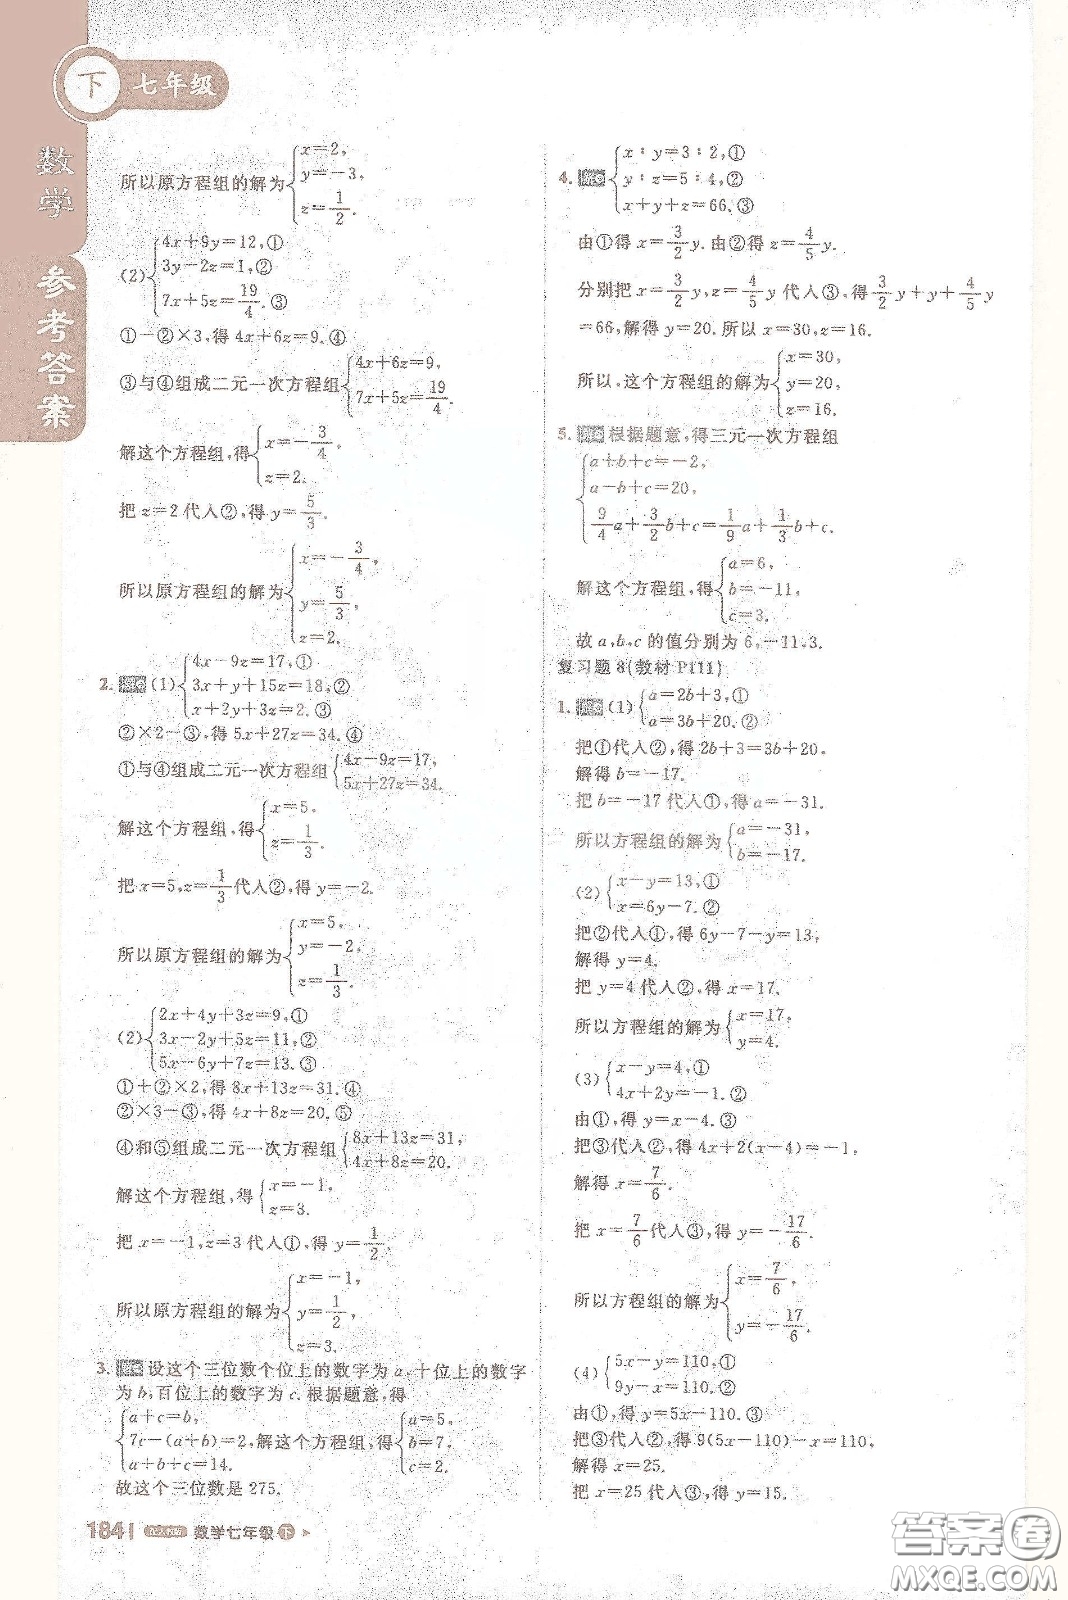 下 七年级
数学
参考答案
所以原方程组的解为{x=2, y=-3, z=1/2.
(2){4x+9y=12,① 3y-2z=1,② 7x+5z=19/4.③
①-②×3,得 4x+6z=9.④
③与④组成二元一次方程组{4x+6z=9, 7x+5z=19/4.
解这个方程组,得{x=-3/4, z=2.
把 z=2 代入②,得 y=5/3.
所以原方程组的解为{x=-3/4, y=5/3, z=2.
2. (1){4x-9z=17,① 3x+y+15z=18,② x+2y+3z=2.③
②×2-③,得 5x+27z=34.④
①与④组成二元一次方程组{4x-9z=17, 5x+27z=34.
解这个方程组,得{x=5, z=1/3.
把 x=5,z=1/3代入②,得 y=-2.
所以原方程组的解为{x=5, y=-2, z=1/3.
(2){2x+4y+3z=9,① 3x-2y+5z=11,② 5x-6y+7z=13.③
①+②×2,得 8x+13z=31.④
②×3-③,得 4x+8z=20.⑤
④和⑤组成二元一次方程组{8x+13z=31, 4x+8z=20.
解这个方程组,得{x=-1, z=3.
把 x=-1,z=3 代入①,得 y=1/2.
所以原方程组的解为{x=-1, y=1/2, z=3.
3. 设这个三位数个位上的数字为 a,十位上的数字
为 b,百位上的数字为 c.根据题意,得
{a+c=b, 7c-(a+b)=2, a+b+c=14. 解这个方程组,得{a=5, b=7, c=2.
故这个三位数是 275.
184 数学七年级 下
4. {x:y=3:2,① y:z=5:4,② x+y+z=66.③
由①得 x=3/2y.由②得 z=4/5y.
分别把 x=3/2y,z=4/5y 代入③,得3/2y+y+4/5y
=66,解得 y=20.所以 x=30,z=16.
所以,这个方程组的解为{x=30, y=20, z=16.
5. 根据题意,得三元一次方程组
{a+b+c=-2, a-b+c=20, 9/4a+3/2b+c=1/9a+1/3b+c.
解这个方程组,得{a=6, b=-11, c=3.
故 a,b,c 的值分别为 6,-11,3.
复习题 8(教材 P111)
1. (1){a=2b+3,① a=3b+20.②
把①代入②,得 2b+3=3b+20.
解得 b=-17.
把 b=-17 代入①,得 a=-31.
所以方程组的解为{a=-31, b=-17.
(2){x-y=13,① x=6y-7.②
把②代入①,得 6y-7-y=13,
解得 y=4.
把 y=4 代入②,得 x=17.
所以方程组的解为{x=17, y=4.
(3){x-y=4,① 4x+2y=-1.②
由①,得 y=x-4.③
把③代入②,得 4x+2(x-4)=-1,
解得 x=7/6.
把 x=7/6代入③,得 y=-17/6.
所以方程组的解为{x=7/6, y=-17/6.
(4){5x-y=110,① 9y-x=110.②
由①,得 y=5x-110.③
把③代入②,得 9(5x-110)-x=110,
解得 x=25.
把 x=25 代入③,得 y=15.
答案卷
MXQE.COM